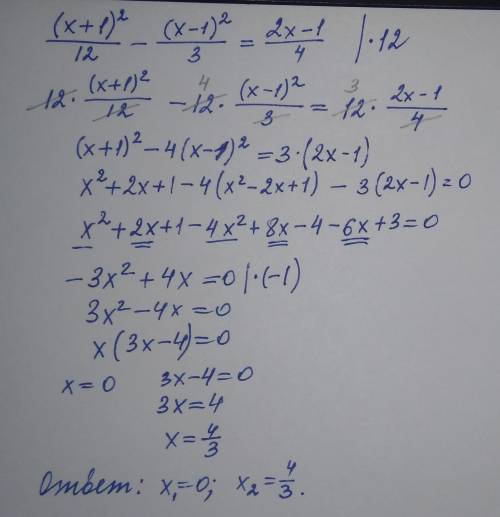 (x+1)²/12 − (x−1)²/3 = (2x−1)/4 | ·12
12 · (x+1)²/12 − 12 · 4 (x−1)²/3 = 12 · 3 (2x−1)/4
(x+1)² − 4(x−1)² = 3·(2x−1)
x² + 2x + 1 − 4(x² − 2x + 1) − 3(2x−1) = 0
x² + 2x + 1 − 4x² + 8x − 4 − 6x + 3 = 0
−3x² + 4x = 0 | ·(−1)
3x² − 4x = 0
x(3x−4) = 0
x = 0 3x−4 = 0
3x = 4
x = 4/3
Ответ: x₁ = 0; x₂ = 4/3.